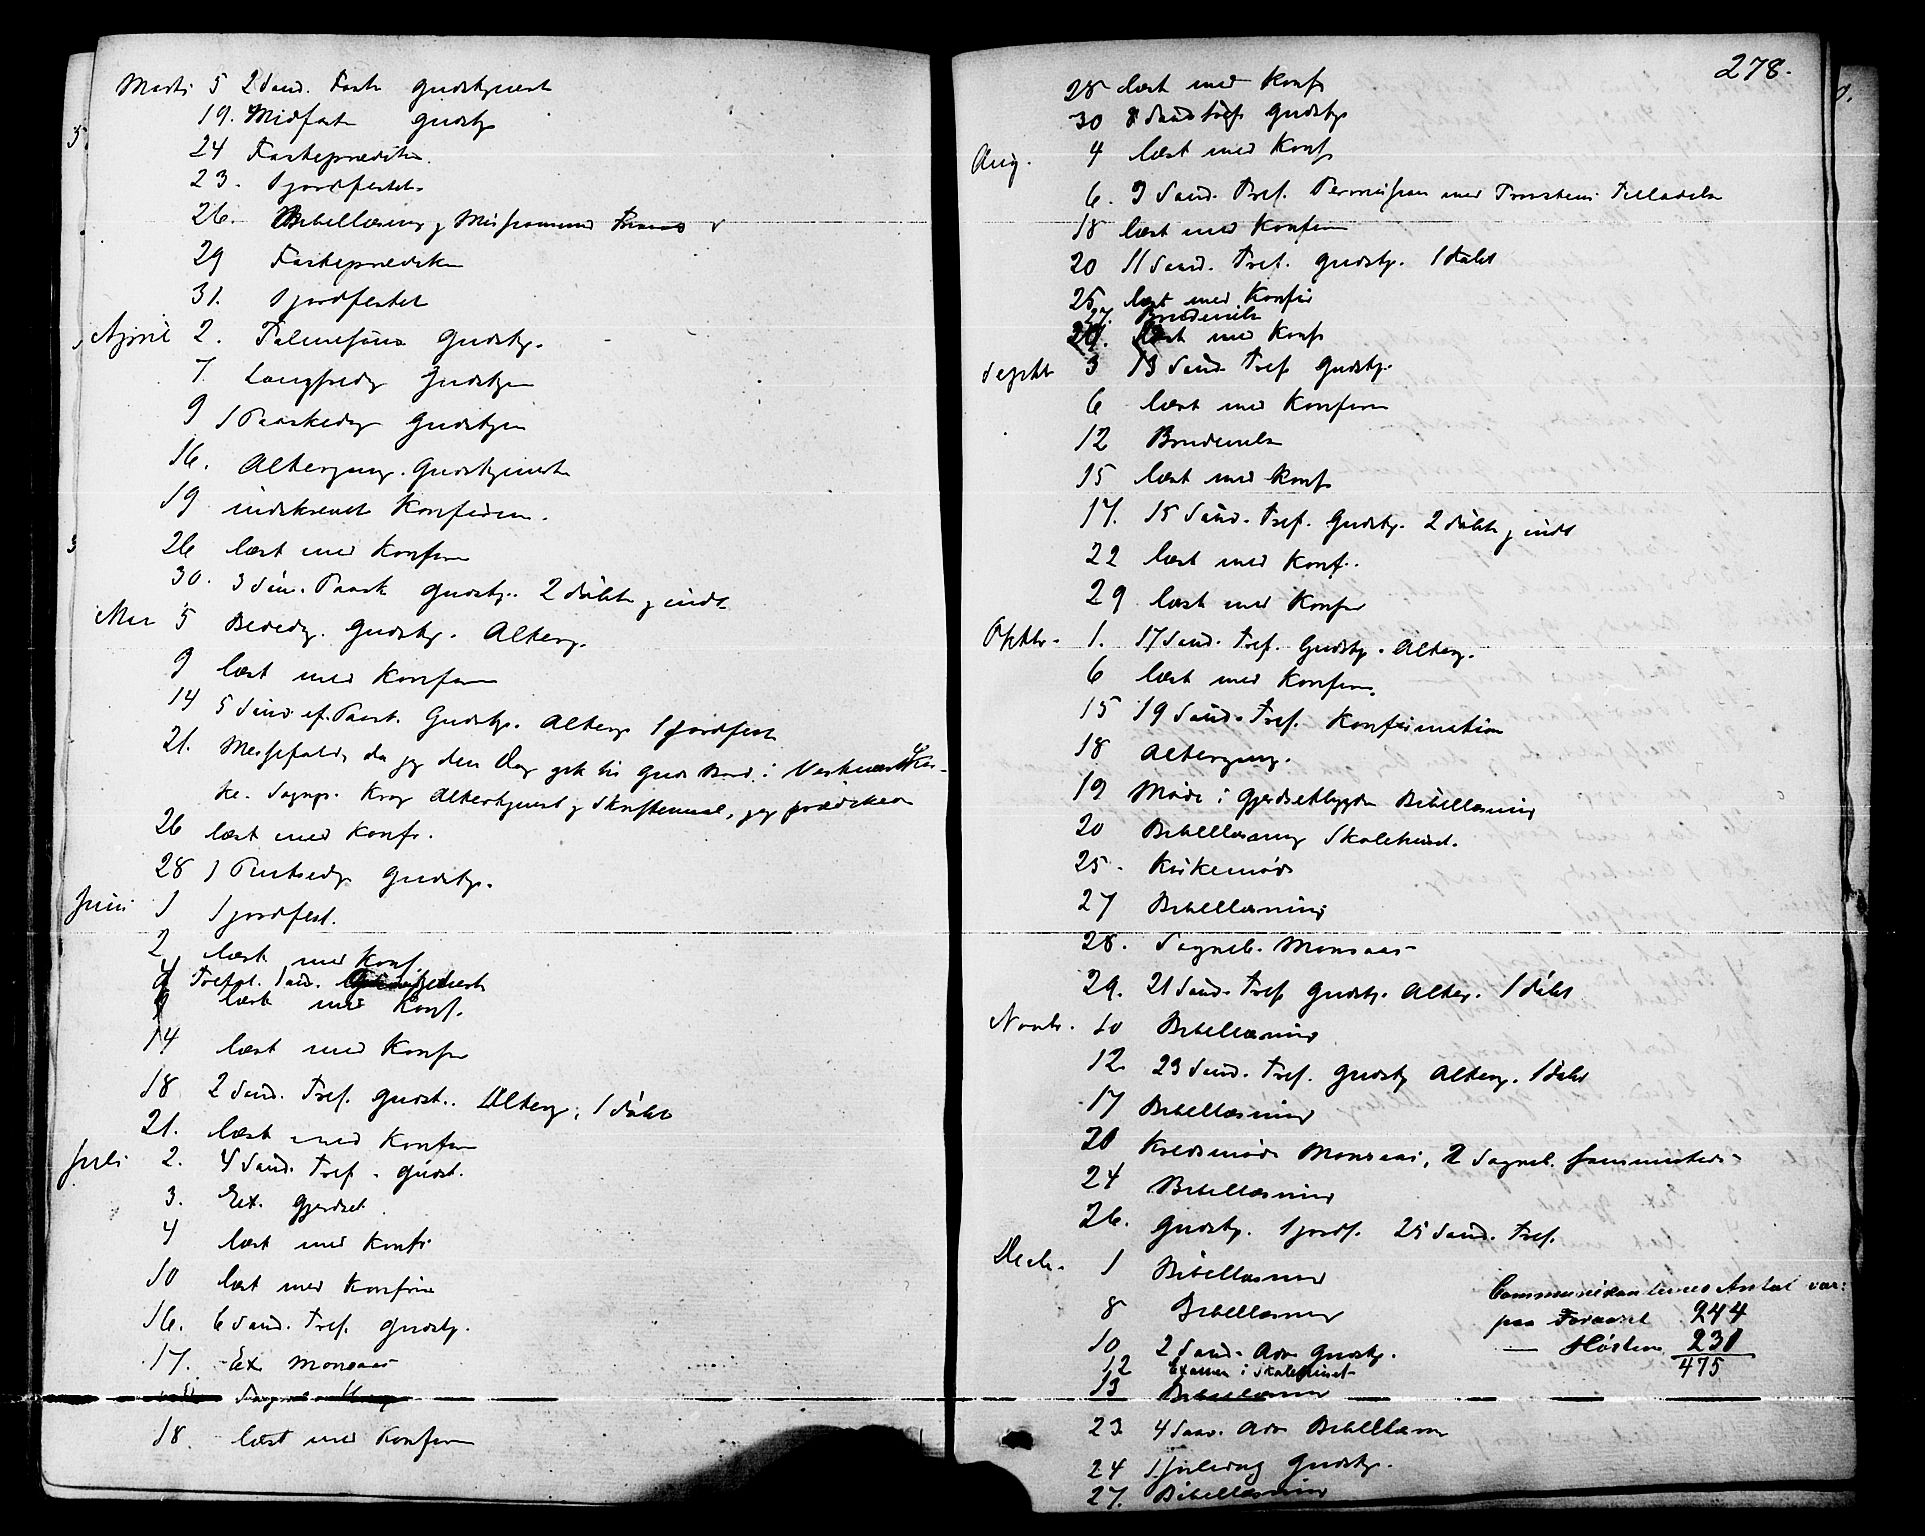 Marts 5 2 Sønd. Faste Gudstjeneste
19. Midfaste Gudstj
24 Fasteprædiken.
23. 1 jordfestet.
26. Bibellæsning
29 Fasteprædiken
31. 1 jordfestet
April 2. Palmesøn Gudstj.
7. Langfredag Gudstjen
9 1 Paaskedag Gudstjen
16. Altergang. Gudstjeneste
19 indskrevet Konfirm.
26 læst med Konfirm
30. 3 Søn. Paask Gudstj. 2 døbte, indt
Mai 5 Bededag. Gudstj. Alterg.
9 læst med Konfirm
14 5 Sønd. ef. Paask. Gudstj. Alterg 1 jordfest
21. Messefald, da jeg den Dag gik til Guds Bord i
ke. Sognpr. Krog Altertjenest og Skriftemaal, jeg prædikede
26 læst med Konfr.
28 1 Pintsedag Gudstj.
Juni 1 1 jordfest.
2 læst med Konf
4 Trefol. Sønd. Gudstjenest
9 læst med Konf.
14 læst med Konfir
18 2 Sønd. Tref. Gudst.. Alterg. 1 døbt
21. læst med Konfirm
Juli 2. 4 Sønd. Tref. Gudst.
3. Ex. Gjerdset
4 læst med Konfi
10 læst med Konfirm
16. 6 Sønd. Tref. Gudstj.
17. Ex. Monsaas
18. læst med Konfirm
278.
28 læst med Konf
30 8 Sønd Tref Gudstj
Aug. 4 læst med Konf
6. 9 Sønd. Tref. Permission med Provstens Tilladelse
18 læst med Konfirm
20 11 Sønd. Tref. Gudstj. 1 døbt
25 læst med Konfir
27. Brudevielse
29. læst med Konf
Septbr 3 13 Sønd. Tref Gudstj.
6 læst med Konfirm
12 Brudevielse
15 læst med Konf
17. 15 Sønd. Tref. Gudstj. 2 døbte, indt
22 læst med Konf.
29 læst med Konfir
Oktbr. 1. 17 Sønd. Tref. Gudstj. Alterg.
6 læst med Konfirm.
15 19 Sønd. Tref. Konfirmation
18 Altergang.
19 Møde i Gjerdsetbygden Bibellæsning
20 Bibellæsning Skolehuset.
25. Kirkemøde
27 Bibellæsning
28. Sogneb. Monsaas
29. 21 Sønd. Tref Gudstj. Alterg. 1 døbt
Novbr. 10 Bibellæsning
12 23 Sønd. Tref. Gudstj Alterg. 1 døbt
17 Bibellæsning
20 Kredsmøde Monsaas, 2 Sogneb.
24 Bibellæsning
26. Gudstj. 1 jordf. 25 Sønd. Tref.
Decbr. 1 Bibellæsning
8 Bibellæsning
10 2 Sønd. Adv Gudstj.
12 Examen i Skolehuset
13 Bibellæsning
23 4 Sønd. Adv Bibellæsn
24 1. Juledag Gudstj.
27. Bibellæsning
Communikanternes Antal var:
paa Foraaret 244
— Høsten 231
475